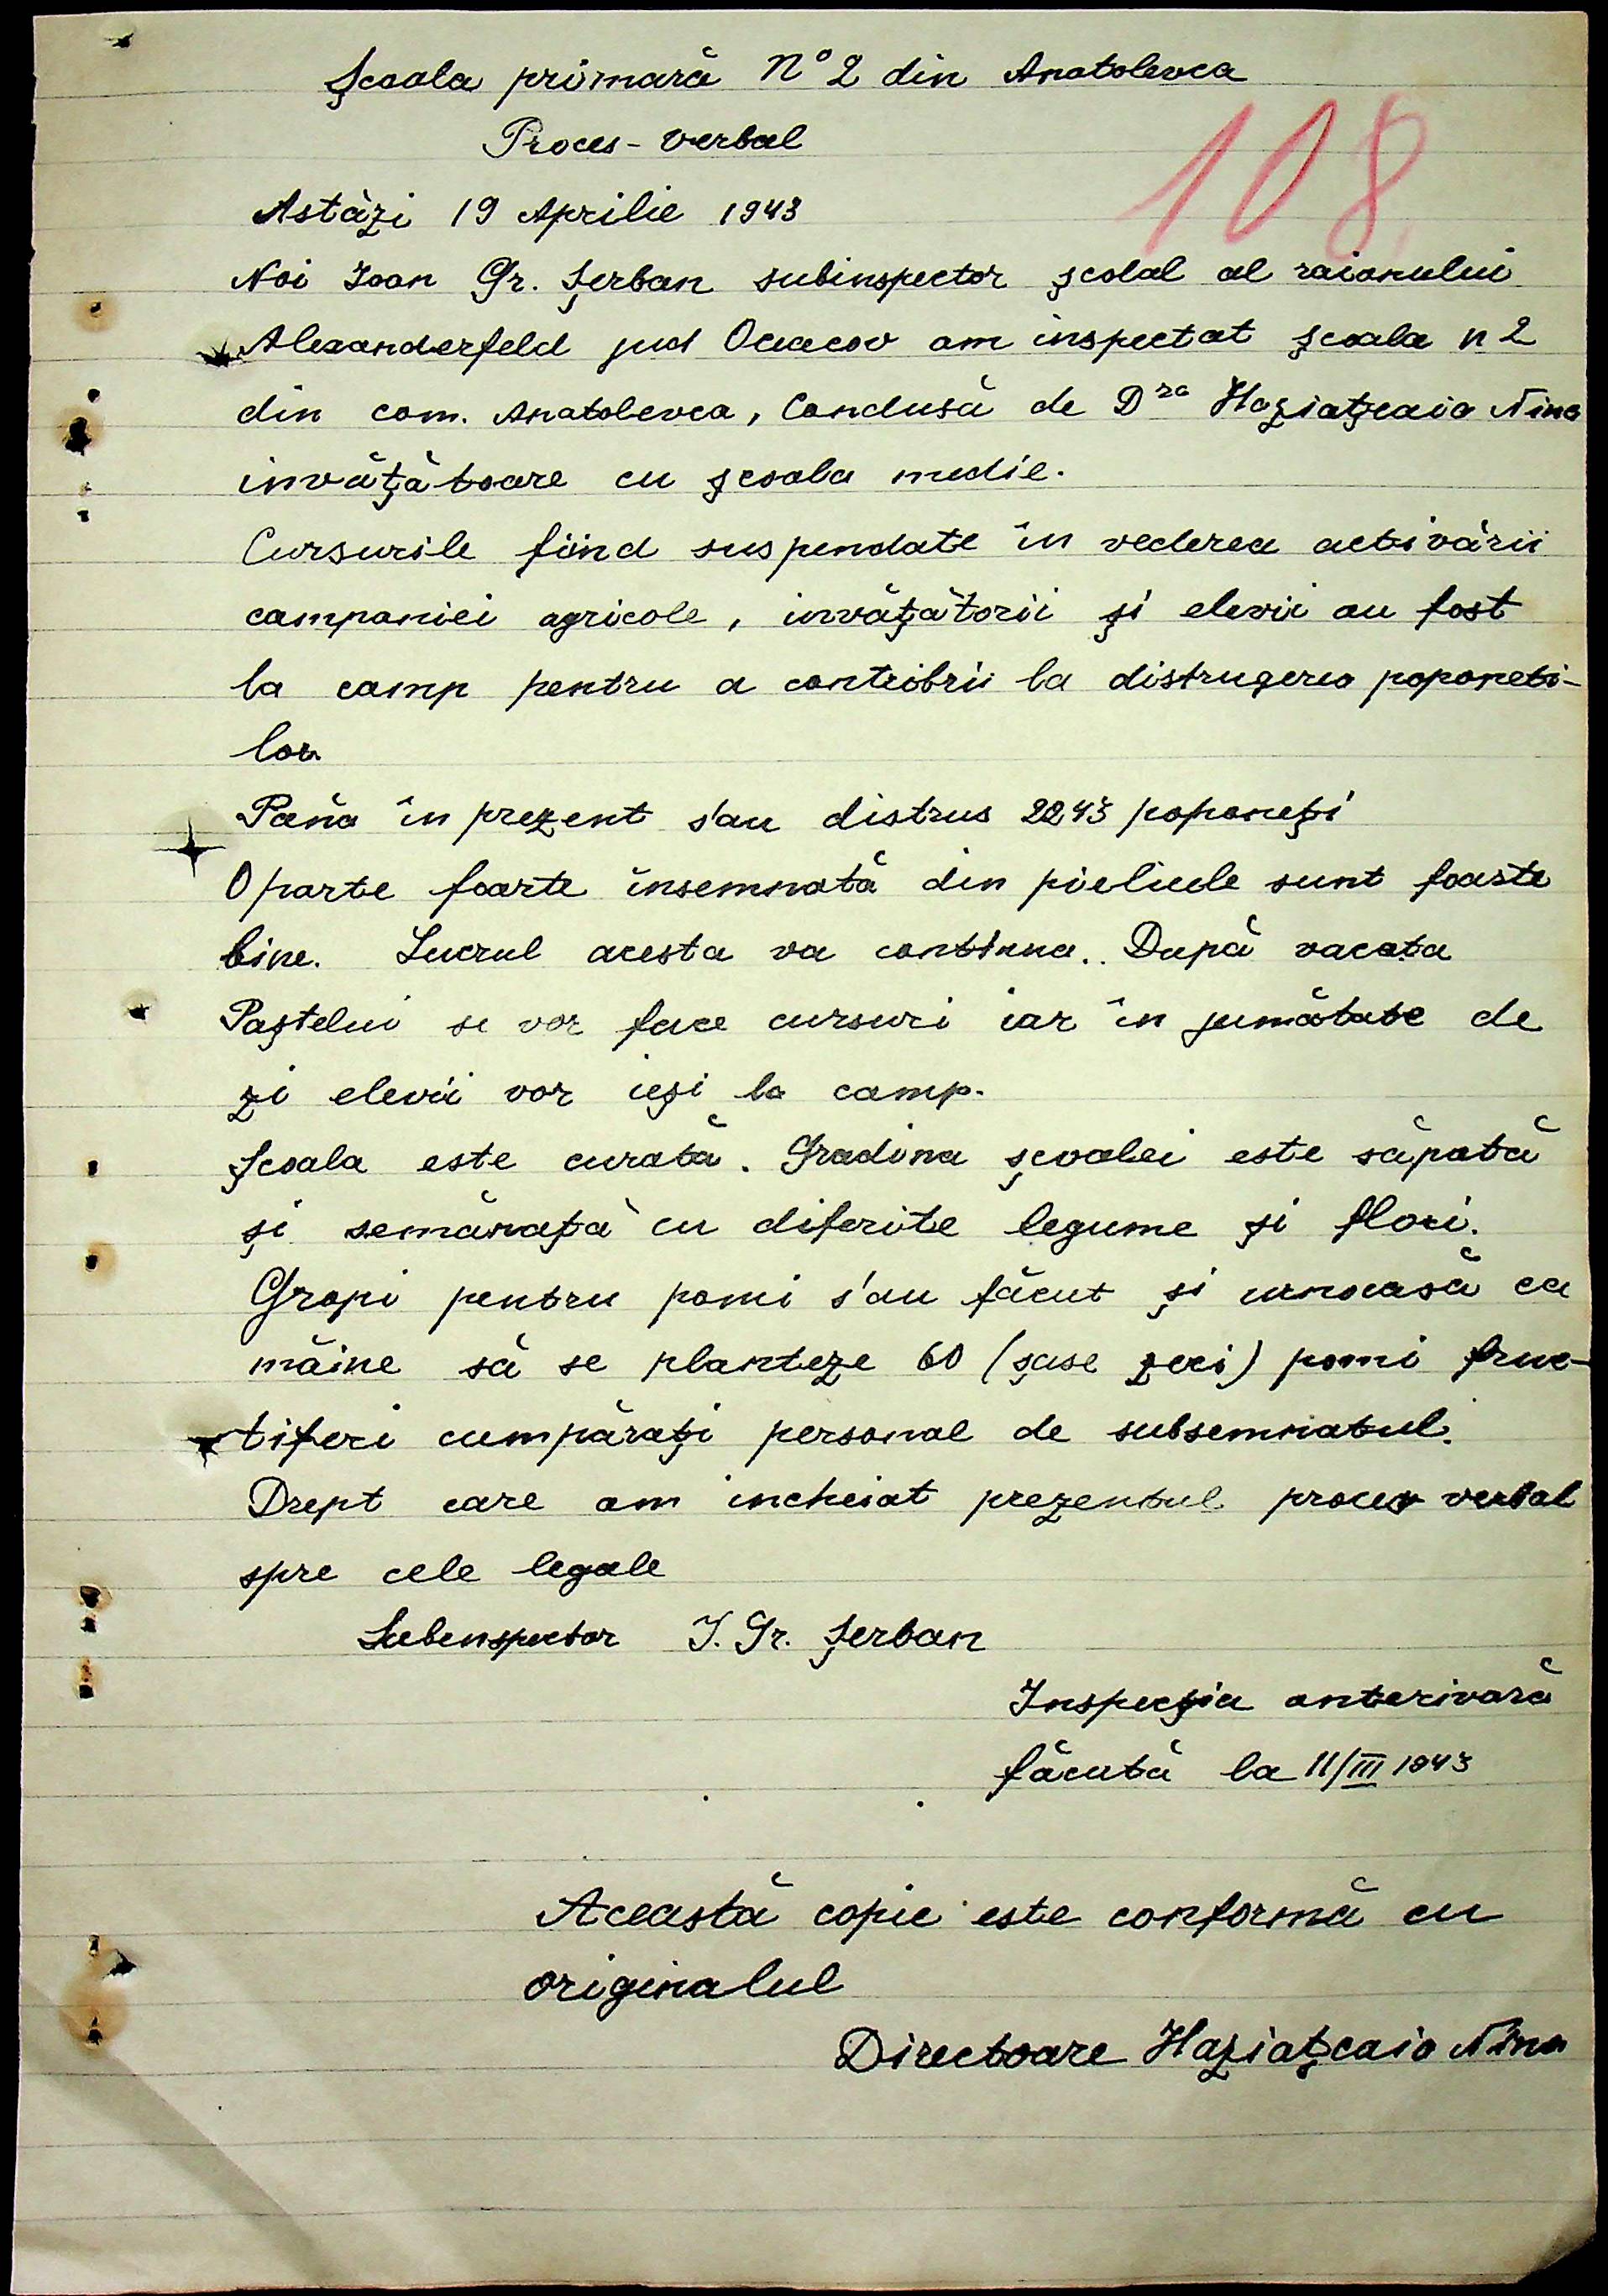 Școala primară N° 2 din Anatolevca
108
Proces-verbal
Astăzi 19 Aprilie 1943
Noi Ioan Gr. Șerban subinspector școlal al raionului
Alexanderfeld jud Oceacov am inspectat școala n 2
din com. Anatolevca, Condusă de Dra Haziațcaia Nina
invățătoare cu școala medie.
Cursurile fiind suspendate în vederea activării
campaniei agricole, invățătorii și elevii au fost
la camp pentru a contribrii la distrugerea poponeti-
lor
Pană în prezent s'au distrus 2243 poponeți
O parte foarte însemnată din pieliele sunt foarte
bine. Lucrul acesta va continua. După vacata
Paștelui se vor face cursuri iar în jumătate de
zi elevii vor ieși la camp.
Școala este curată. Gradina școalei este săpată
și semănată cu diferite legume și flori.
Gropi pentru pomi s'au făcut și urmează ca
măine să se planteze 60 (șase zeci) pomi fruc-
tiferi cumpărați personal de subsemnatul.
Drept care am incheiat prezentul proces verbal
spre cele legale
Subinspector I. Gr. Șerban
Inspecția anterioară
făcută la 11/III 1943
Această copie este conformă cu
originalul
Directoare Haziațcaia Nina